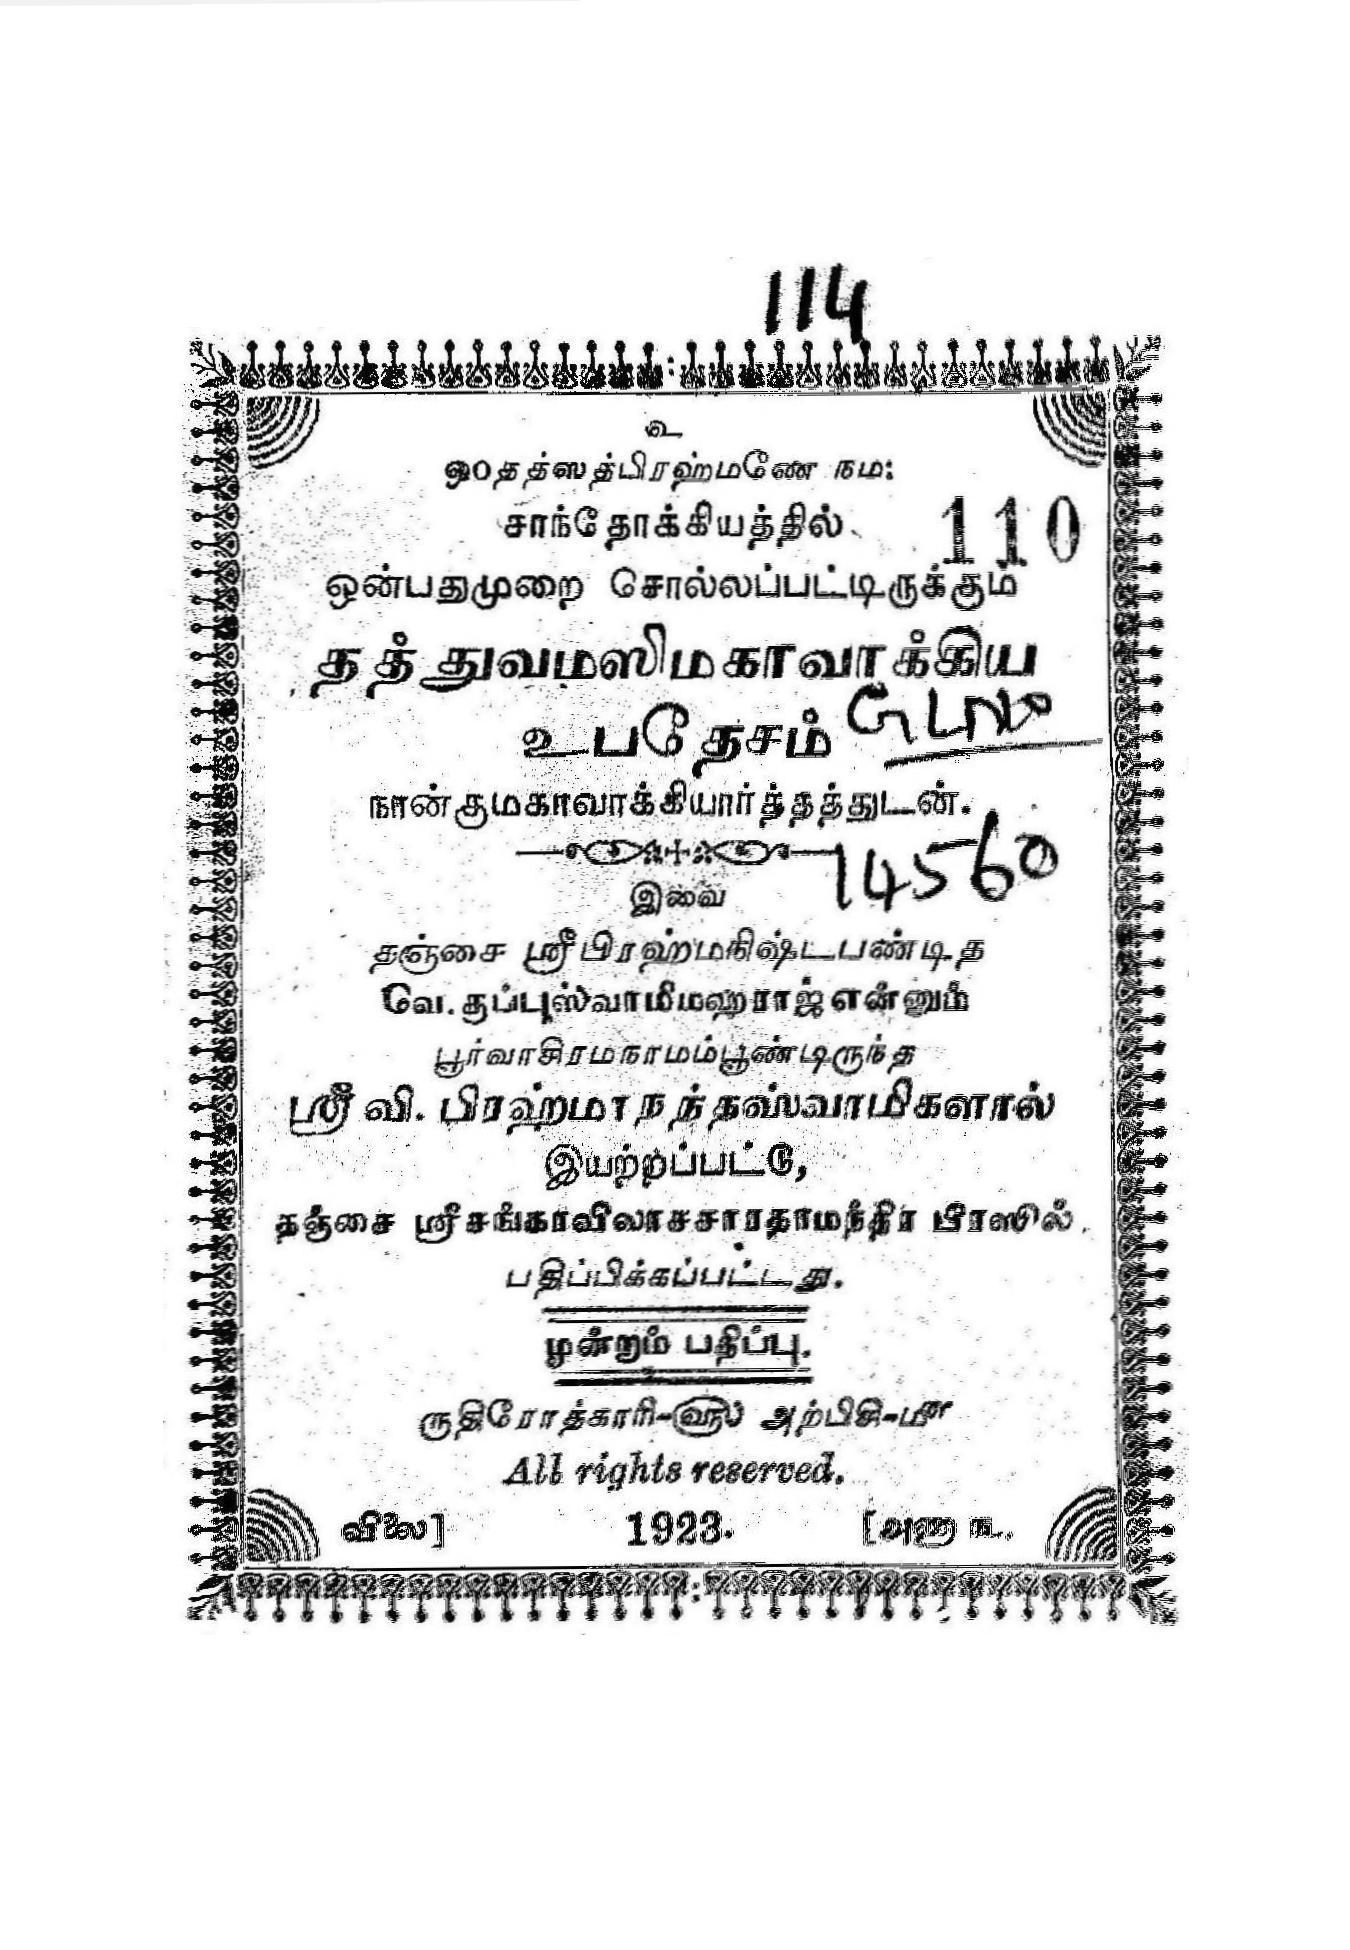 114
உ
ஓம்தத்ஸத்பிரஹ்மணே நம:
சாந்தோக்கியத்தில்
110
ஒன்பதுமுறை சொல்லப்பட்டிருக்கும்
தத்துவமஸிமகாவாக்கிய
உபதேசம்
நான்குமகாவாக்கியார்த்தத்துடன்.
14560
இவை
தஞ்சை ஸ்ரீ பிரஹ்மநிஷ்டபண்டித
வே. குப்புஸ்வாமிமஹராஜ் என்னும்
பூர்வாசிரமநாமம்பூண்டிருந்த
ஸ்ரீ வி. பிரஹ்மாநந்தஸ்வாமிகளால்
இயற்றப்பட்டு,
தஞ்சை ஸ்ரீசங்கரவிலாசசாரதாமந்திர பிரஸில்
பதிப்பிக்கப்பட்டது.
மூன்றும் பதிப்பு.
ருதிரோத்காரி-௵ அற்பிசி-௴
All rights reserved.
விலை] 1923. [அணா ௩.